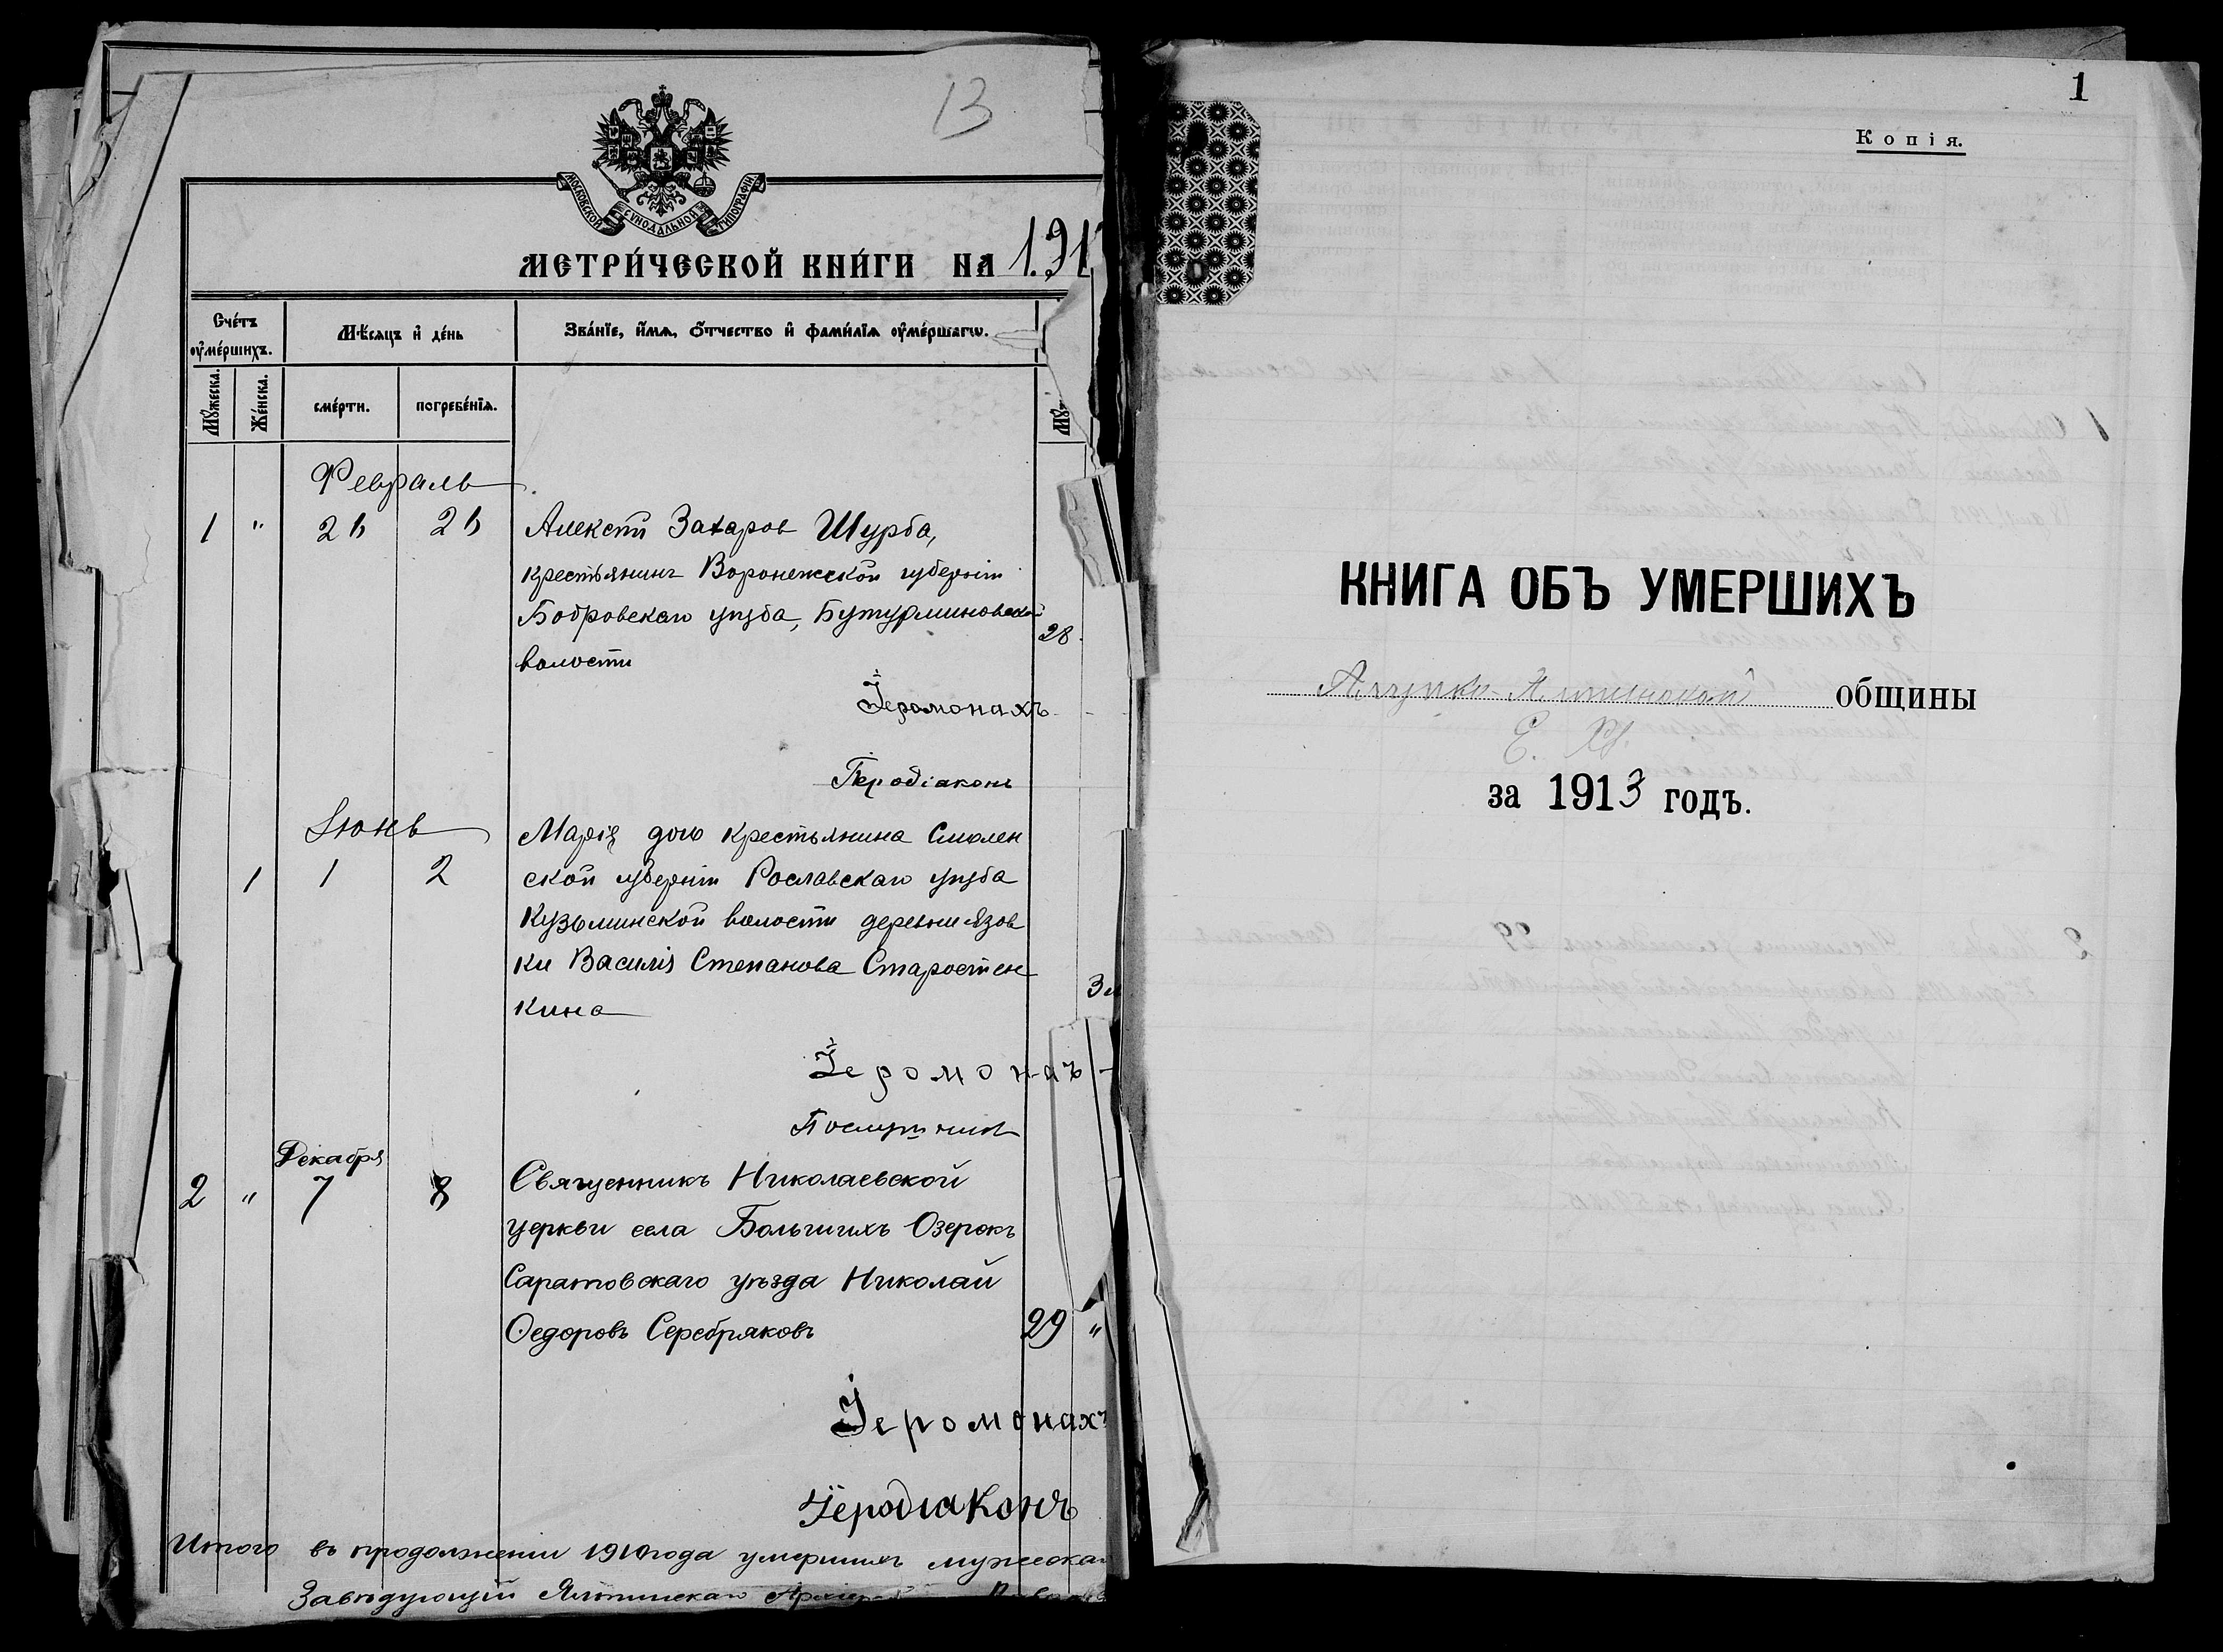 13
МОСКОВСКОЙ СѴНОДАЛЬНОЙ ТИПОГРАФІИ
МЕТРИ́ЧЕСКОЙ КНИ́ГИ НА 191
Сче́тъ ᲂу҆ме́ршихъ.
Мѣ́сяцъ и҆ де́нь
Зва́нїе, и҆́мя, ѻ҆́тчество и҆ фами́лїя ᲂу҆ме́ршагѡ.
Мꙋ́жеска.
Же́нска.
сме́рти.
погребе́нїя.
Мꙋ́
Февраль
1 " 25 25 Алексѣй Захаров Шурба,
крестьянинъ Воронежской губерніи
Бобровскаго уѣзда, Бутурлиновской
28
волости
Іеромонахъ
Іеродіаконъ
Іюнь
Марія дочь крестьянина Смолен
1 1 2 ской губерніи Рославскаго уѣзда
Кузьминской волости деревни Язов
ки Василія Степанова Старостен
3 м
кина
Іеромонахъ
Послушник
Декабря
2 " 7 8 Священникъ Николаевской
церкви села Большихъ Озерокъ
Саратовскаго уѣзда Николай
Ѳедоровъ Серебряковъ 29 "
Іеромонахъ
Іеродіаконъ
Итого въ продолженіи 1910 года умершихъ мужеска
Завѣдующій Ялтинскаго
1
Копія.
КНИГА ОБЪ УМЕРШИХЪ
Алупко-Ялтинской общины
Е. Х.
за 1913 годъ.